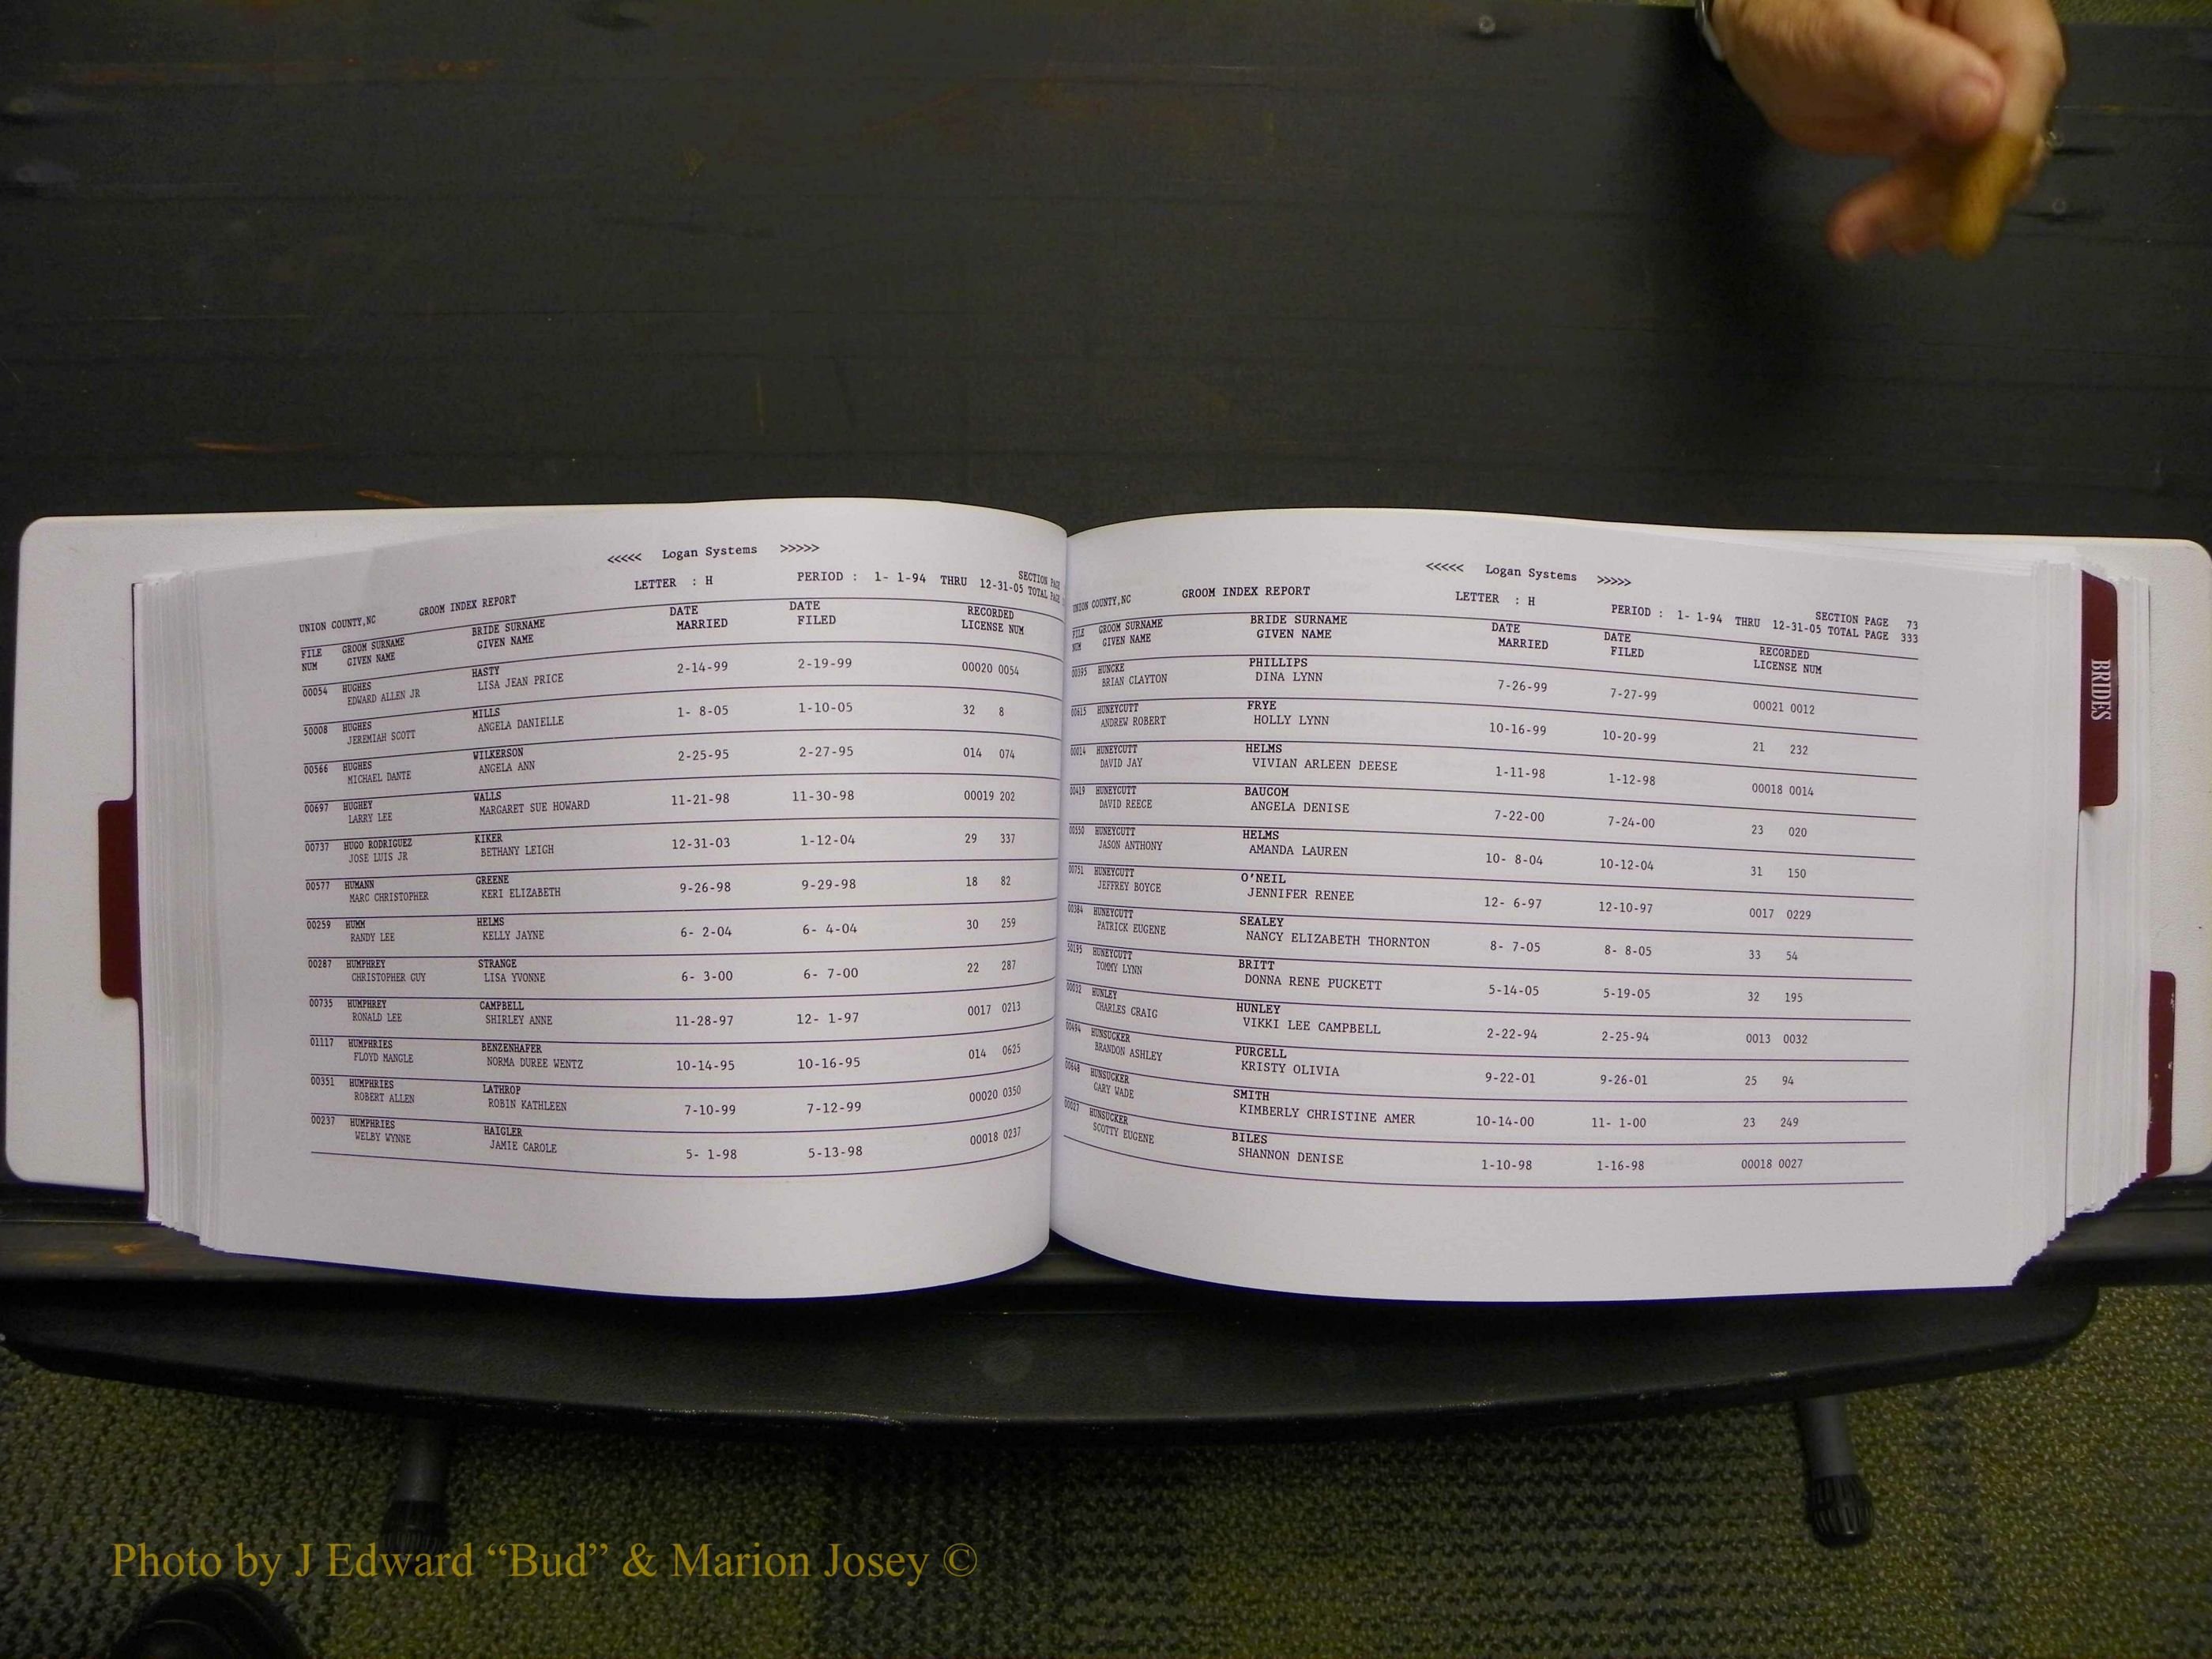 <<<<< Logan Systems >>>>>
UNION COUNTY,NC GROOM INDEX REPORT LETTER : H PERIOD : 1- 1-94 THRU 12-31-05 SECTION PAGE
TOTAL PAGE
FILE GROOM SURNAME BRIDE SURNAME DATE DATE RECORDED
NUM GIVEN NAME GIVEN NAME MARRIED FILED LICENSE NUM
00054 HUGHES HASTY 2-14-99 2-19-99 00020 0054
EDWARD ALLEN JR LISA JEAN PRICE
50008 HUGHES MILLS 1- 8-05 1-10-05 32 8
JEREMIAH SCOTT ANGELA DANIELLE
00566 HUGHES WILKERSON 2-25-95 2-27-95 014 074
MICHAEL DANTE ANGELA ANN
00697 HUGHEY WALLS 11-21-98 11-30-98 00019 202
LARRY LEE MARGARET SUE HOWARD
00737 HUGO RODRIGUEZ KIKER 12-31-03 1-12-04 29 337
JOSE LUIS JR BETHANY LEIGH
00577 HUMANN GREENE 9-26-98 9-29-98 18 82
MARC CHRISTOPHER KERI ELIZABETH
00259 HUMM HELMS 6- 2-04 6- 4-04 30 259
RANDY LEE KELLY JAYNE
00287 HUMPHREY STRANGE 6- 3-00 6- 7-00 22 287
CHRISTOPHER GUY LISA YVONNE
00735 HUMPHREY CAMPBELL 11-28-97 12- 1-97 0017 0213
RONALD LEE SHIRLEY ANNE
01117 HUMPHRIES BENZENHAFER 10-14-95 10-16-95 014 0625
FLOYD MANGLE NORMA DUREE WENTZ
00351 HUMPHRIES LATHROP 7-10-99 7-12-99 00020 0350
ROBERT ALLEN ROBIN KATHLEEN
00237 HUMPHRIES HAIGLER 5- 1-98 5-13-98 00018 0237
WELBY WYNNE JAMIE CAROLE
<<<<< Logan Systems >>>>>
UNION COUNTY,NC GROOM INDEX REPORT LETTER : H PERIOD : 1- 1-94 THRU 12-31-05 SECTION PAGE 73
TOTAL PAGE 333
FILE GROOM SURNAME BRIDE SURNAME DATE DATE RECORDED
NUM GIVEN NAME GIVEN NAME MARRIED FILED LICENSE NUM
00395 HUNCKE PHILLIPS 7-26-99 7-27-99 00021 0012
BRIAN CLAYTON DINA LYNN
00615 HUNEYCUTT FRYE 10-16-99 10-20-99 21 232
ANDREW ROBERT HOLLY LYNN
00014 HUNEYCUTT HELMS 1-11-98 1-12-98 00018 0014
DAVID JAY VIVIAN ARLEEN DEESE
00419 HUNEYCUTT BAUCOM 7-22-00 7-24-00 23 020
DAVID REECE ANGELA DENISE
00550 HUNEYCUTT HELMS 10- 8-04 10-12-04 31 150
JASON ANTHONY AMANDA LAUREN
00751 HUNEYCUTT O'NEIL 12- 6-97 12-10-97 0017 0229
JEFFREY BOYCE JENNIFER RENEE
00384 HUNEYCUTT SEALEY 8- 7-05 8- 8-05 33 54
PATRICK EUGENE NANCY ELIZABETH THORNTON
50195 HUNEYCUTT BRITT 5-14-05 5-19-05 32 195
TOMMY LYNN DONNA RENE PUCKETT
00032 HUNLEY HUNLEY 2-22-94 2-25-94 0013 0032
CHARLES CRAIG VIKKI LEE CAMPBELL
00494 HUNSUCKER PURCELL 9-22-01 9-26-01 25 94
BRANDON ASHLEY KRISTY OLIVIA
00648 HUNSUCKER SMITH 10-14-00 11- 1-00 23 249
GARY WADE KIMBERLY CHRISTINE AMER
00027 HUNSUCKER BILES 1-10-98 1-16-98 00018 0027
SCOTTY EUGENE SHANNON DENISE
BRIDES
Photo by J Edward “Bud” & Marion Josey ©